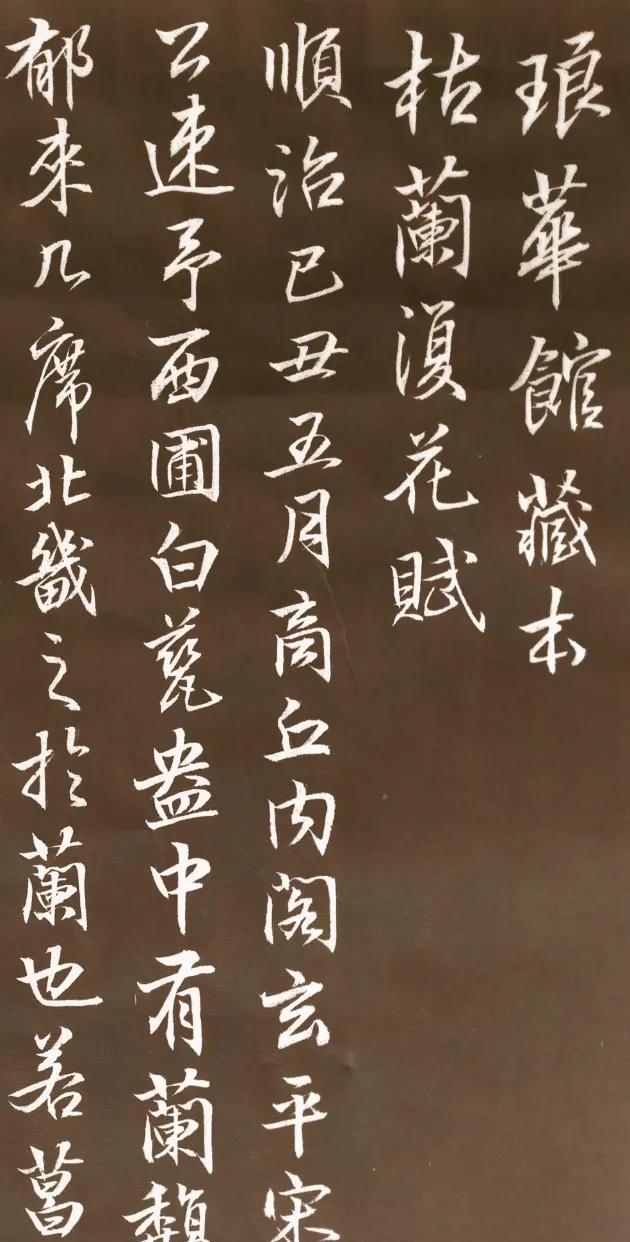 琅華館藏本
枯蘭復花賦
順治己丑五月商丘内閣玄平宋
公速予西圃白甆盎中有蘭馥
郁来几席北畿之於蘭也若菖